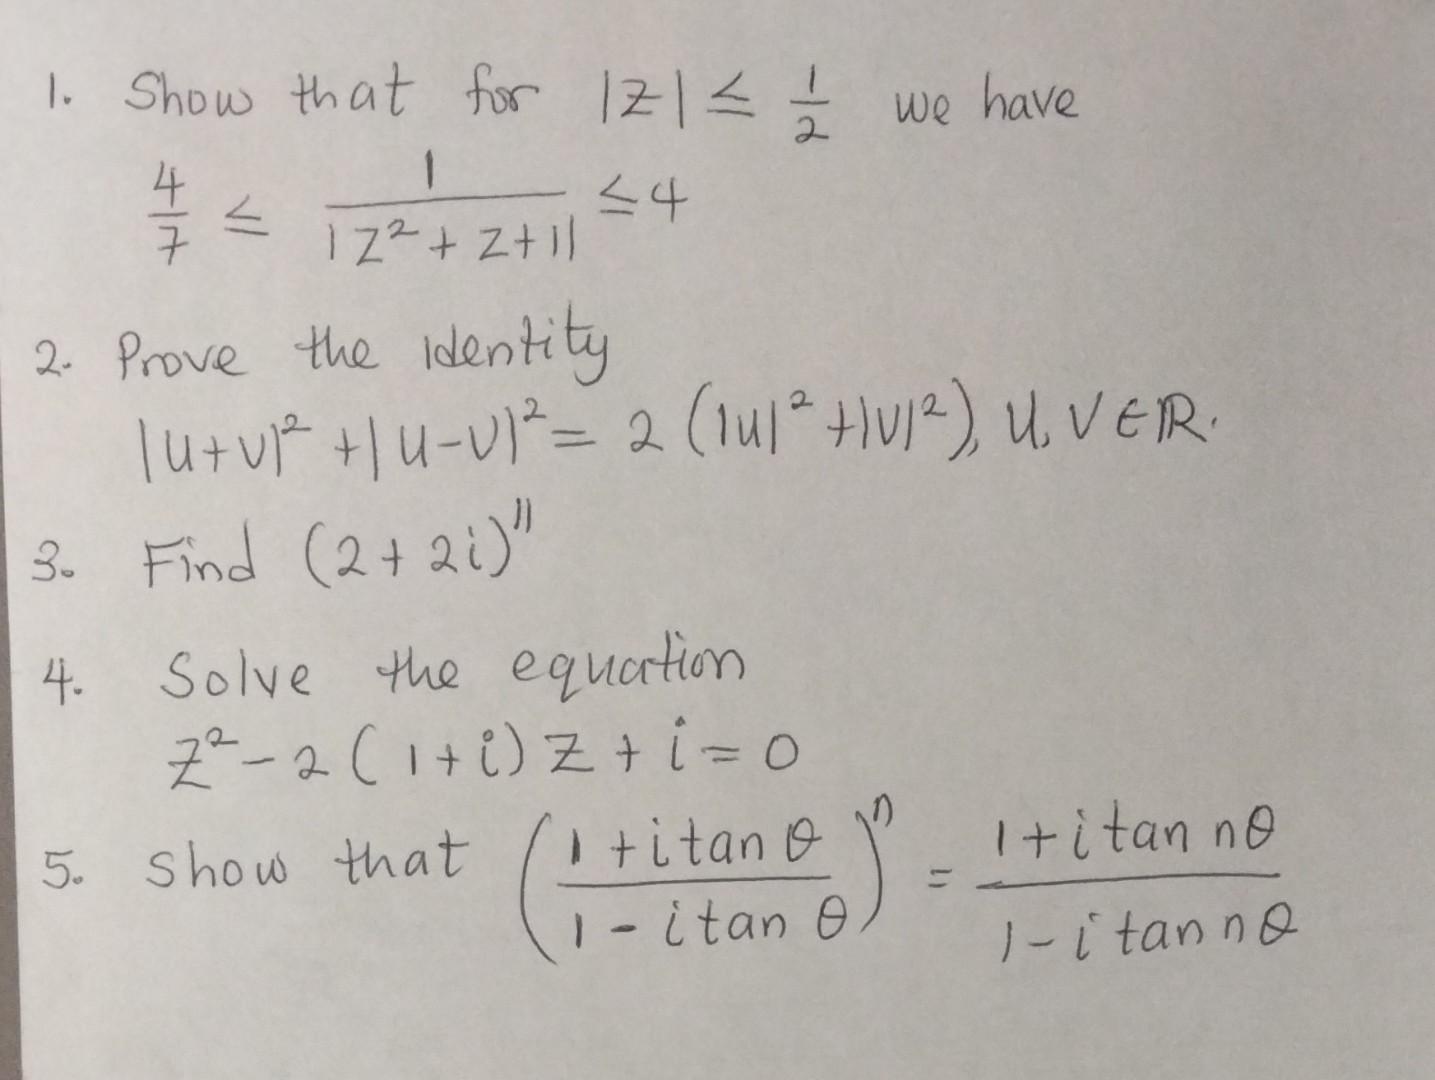 1. Show that for |z| ≤ 1/2 we have
4/7 ≤ 1/|z² + z+1| ≤ 4
2. Prove the identity
|u+v|² + |u-v|² = 2 (|u|² + |v|²), u, v ∈ ℝ.
3. Find (2+2i)¹¹
4. Solve the equation
z² - 2(1+i)z + i = 0
5. Show that ((1+i tan θ)/(1-i tan θ))ⁿ = (1+i tan nθ)/(1-i tan nθ)